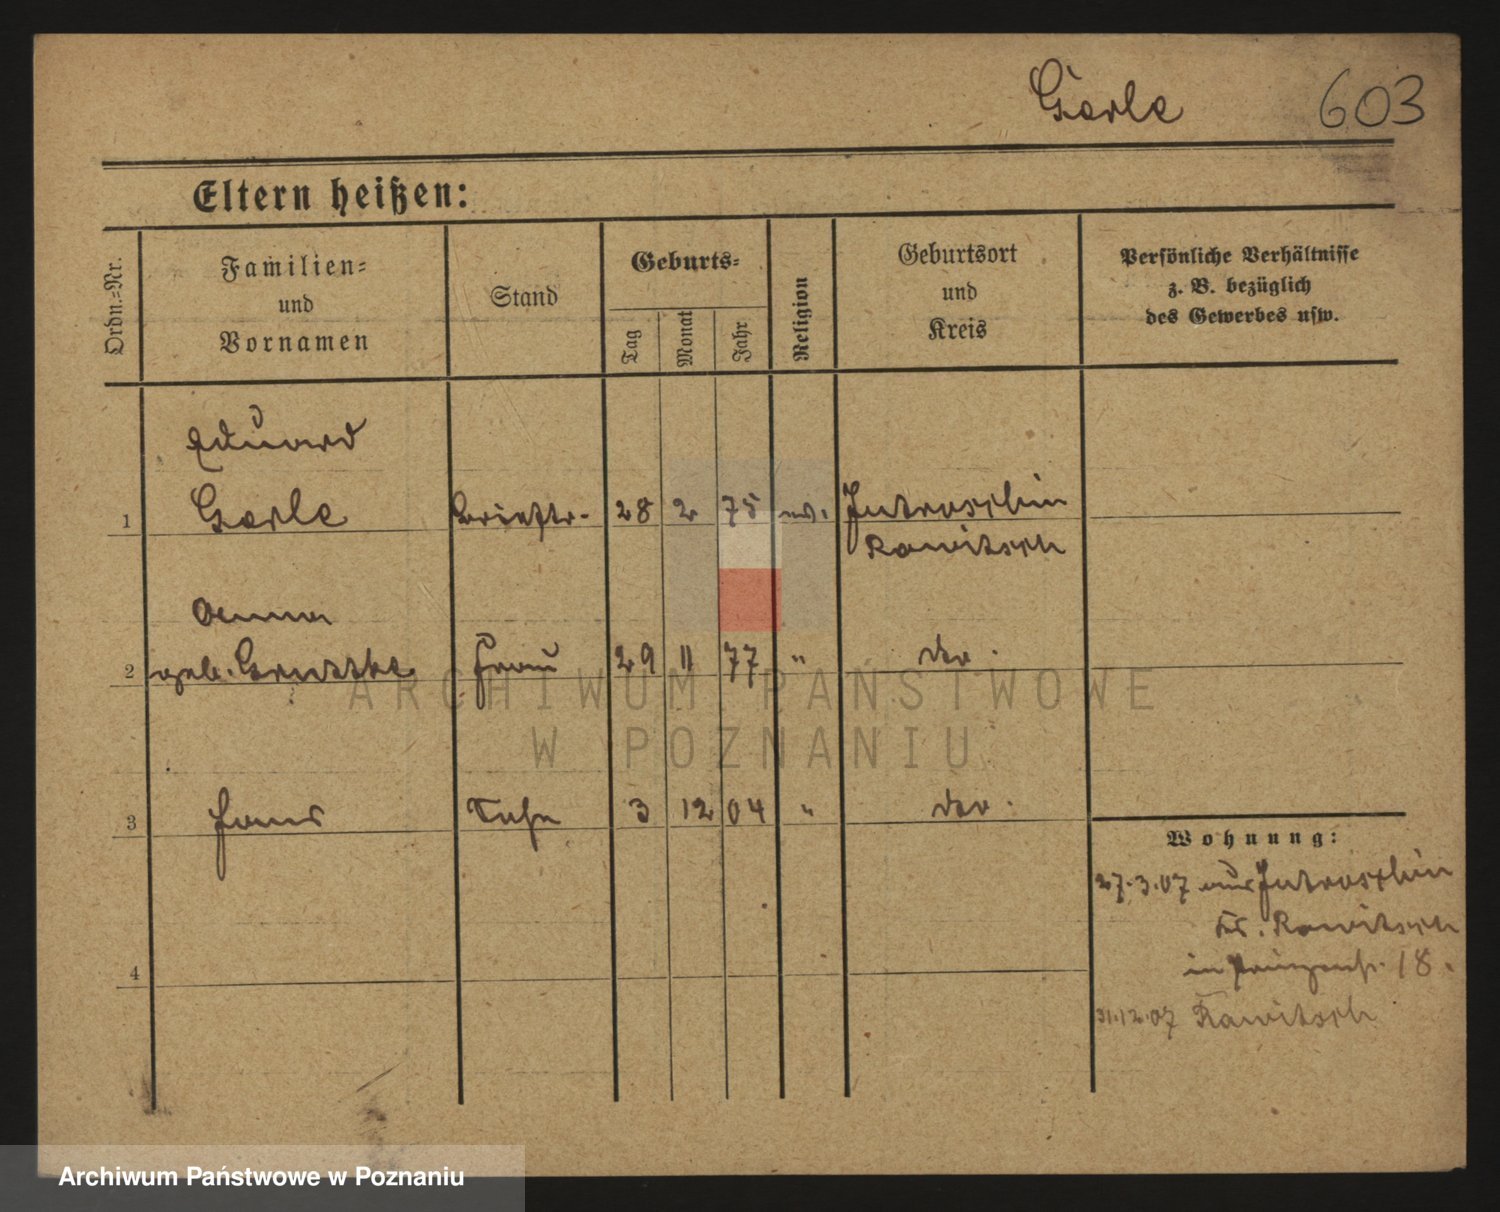 Gerle 603
Eltern heißen:
Ordn.=Nr.
Familien=
und
Vornamen
Stand
Geburts=
Tag
Monat
Jahr
Religion
Geburtsort
und
Kreis
Persönliche Verhältnisse
z. B. bezüglich
des Gewerbes usw.
Eduard
1 Gerle Brieftr. 28 2 75 ev. Jutroschin
Rawitsch
Anna
2 geb. Frau 29 11 77 " do.
3 Hans Sohn 3 12 04 " do.
4
Wohnung:
27.3.07 aus Jutroschin
Kr. Rawitsch
in 18.
31.12.07 Rawitsch
ARCHIWUM PAŃSTWOWE
W POZNANIU
Archiwum Państwowe w Poznaniu